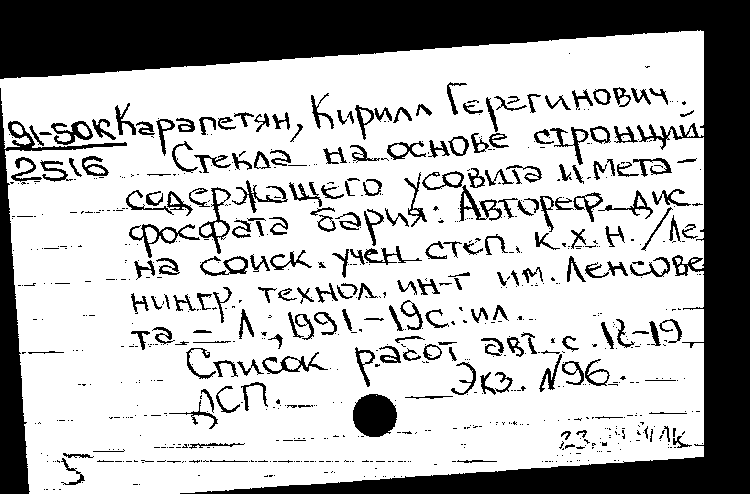 91-50К Карапетян, Кирилл Герегинович.
2516 Стекла на основе стронций-
содержащего усовита и мета-
фосфата бария: Автореф. дис
на соиск. учен степ. к.х.н. / Ле-
нингр. технол. ин-т им. Ленсове
та – Л., 1991. – 19 с.: ил.
Список работ авт.: с. 18-19.
ДСП. Экз. №96.
23. 91 ЛК
5